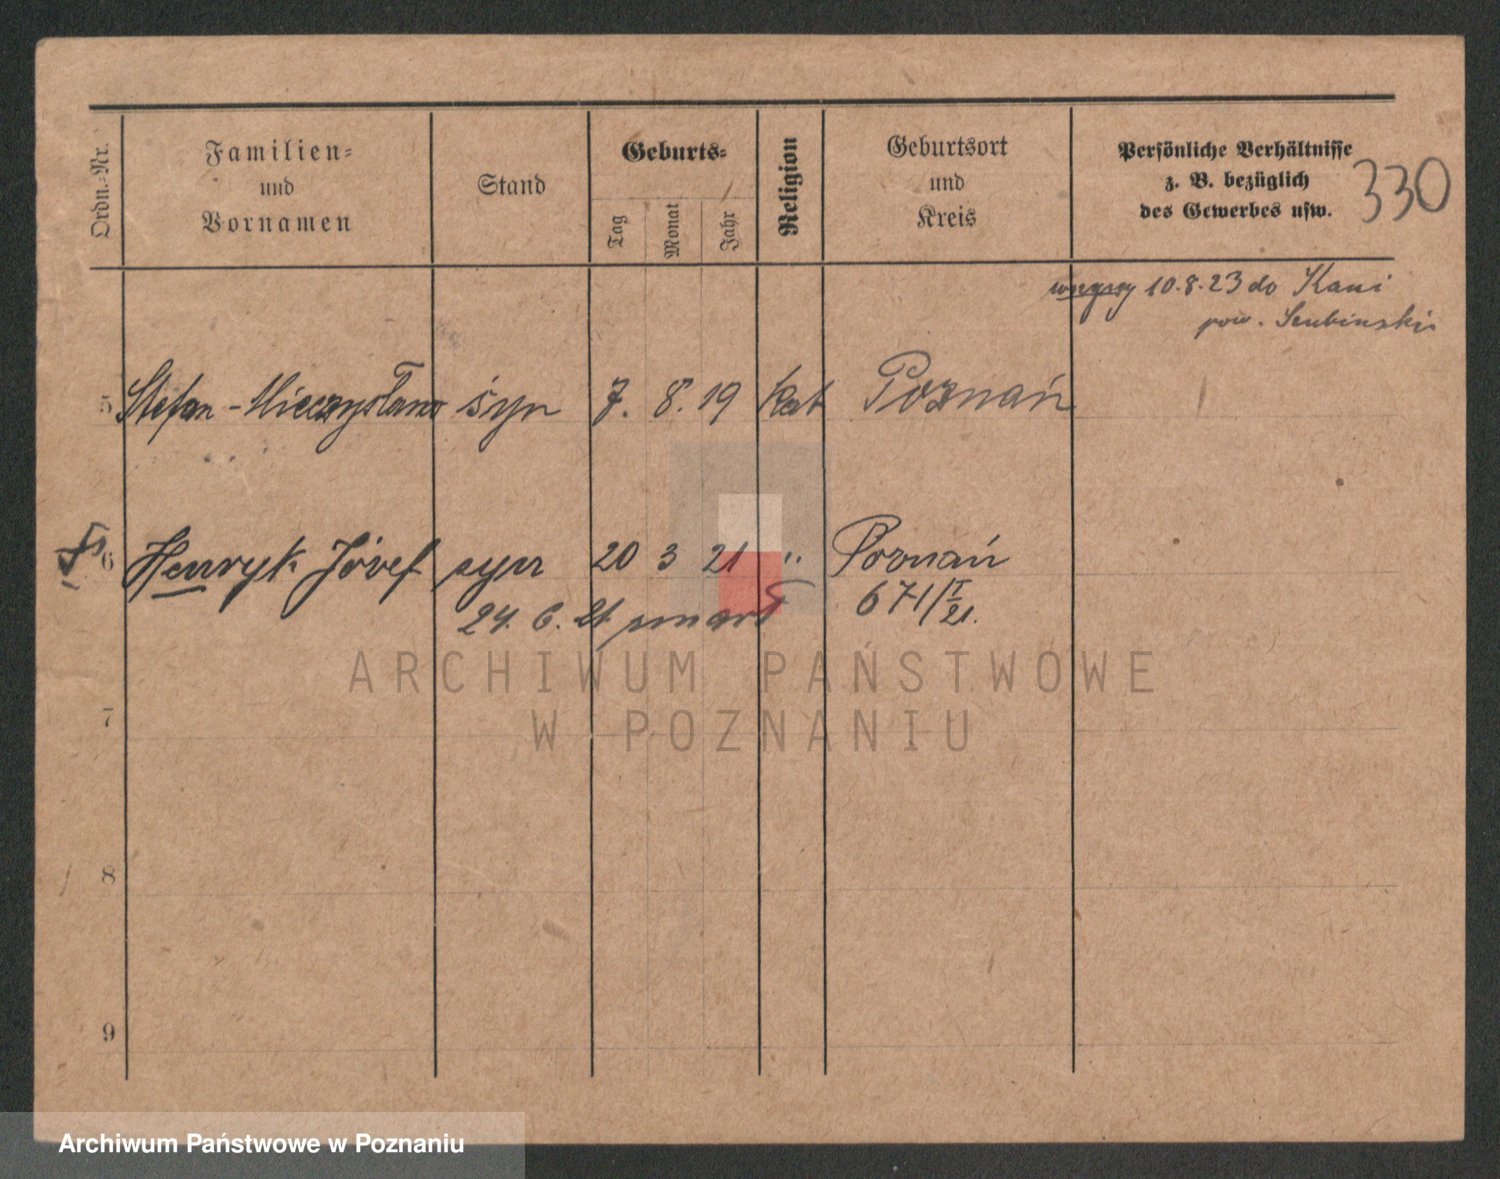 Ordn.-Nr.
Familien-
und
Vornamen
Stand
Geburts-
Tag
Monat
Jahr
Religion
Geburtsort
und
Kreis
Persönliche Verhältnisse
z. B. bezüglich
des Gewerbes usw.
330
10.8.23 do Kani
pow. Szubinski
5 Stefan-Mieczysław syn 7. 8. 19 kat Poznań
6 Henryk Józef syn 20 3 21 " Poznań
24. 6. 21 zmarł 671/I 21.
7
8
9
ARCHIWUM PAŃSTWOWE
W POZNANIU
Archiwum Państwowe w Poznaniu